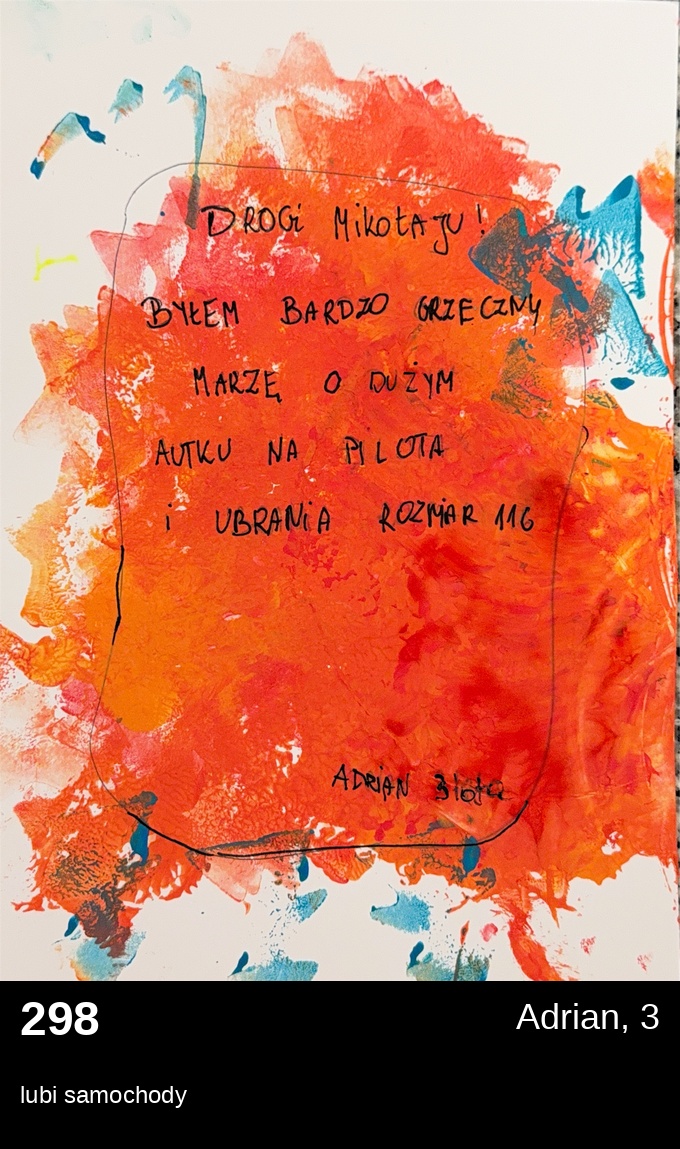 DROGi MikołAJU!
BYŁEM BARDZO GRZECZNY
MARZĘ O DUŻYM
AUTKU NA PILOTA
i UBRANiA ROZMiAR 116
ADRiAN 3 lata
298
Adrian, 3
lubi samochody